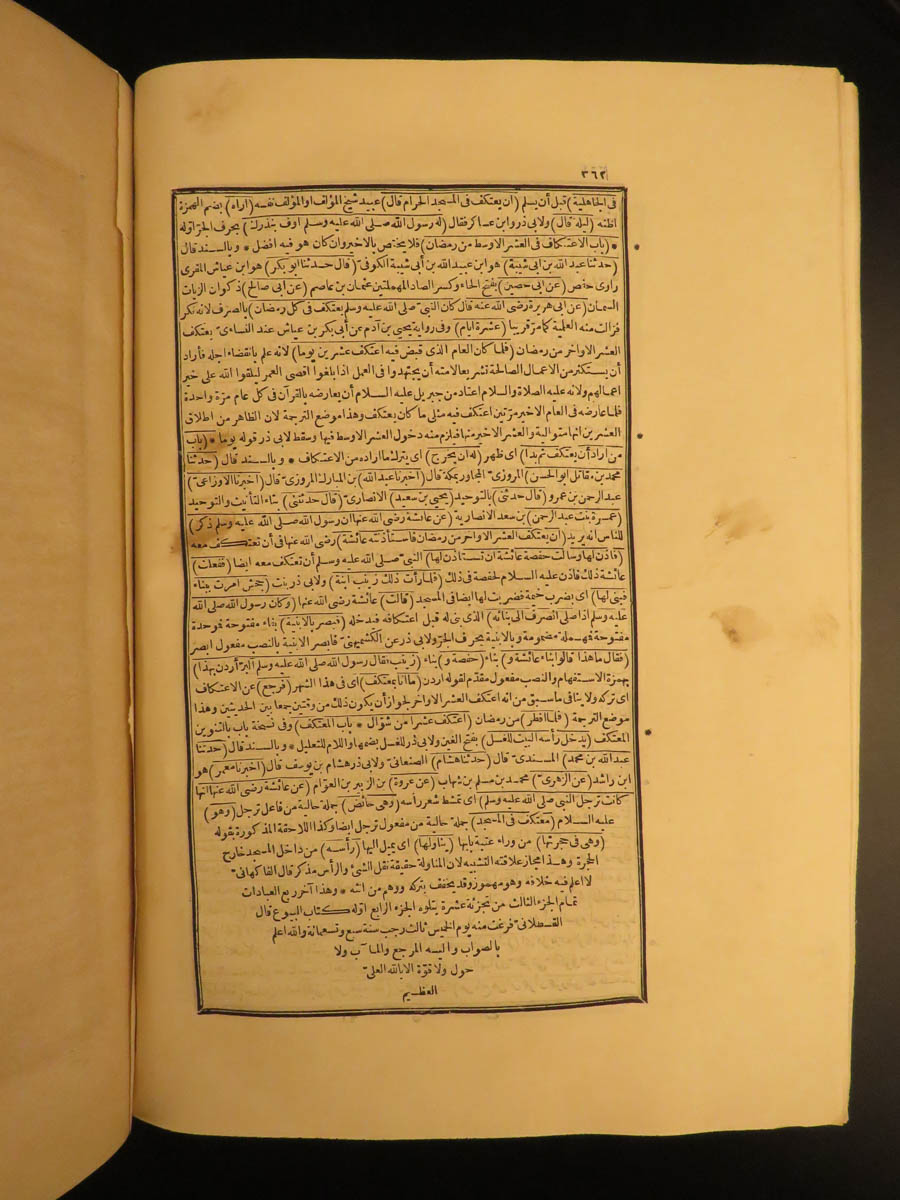 ٣٦٢
فى الجاهلية) قبل أن يسلم (ان يعتكف فى المسجد الحرام قال) عبيد شيخ المؤلف او المؤلف نفسه (اراه) بضم الهمزة
اظنه (ليلة قال) ولابى ذر وابن عساكر فقال (له رسول الله صلى الله عليه وسلم اوف بنذرك) بحرف الجرّ اوله
* (باب الاعتكاف فى العشر الاوسط من رمضان) فلا يختص بالاخير وان كان هو فيه افضل * وبالسند قال
(حدثنا عبد الله بن ابى شيبة) هو ابن عبيد الله بن أبى شيبة الكوفىّ (قال حدثنا ابو بكر) هو ابن عياش المقرى
راوى حفص (عن ابى حصين) بفتح الحاء وكسر الصاد المهملتين عثمان بن عاصم (عن ابى صالح) ذكوان الزيات
السمان (عن ابى هريرة رضى الله عنه قال كان النبىّ صلى الله عليه وسلم يعتكف فى كل رمضان) بالصرف لانه نكر
فزالت منه العلمية كما مرّ قريبا (عشرة ايام) وفى رواية يحيى بن آدم عن أبى بكر بن عياش عند النساءىّ يعتكف
العشر الاواخر من رمضان (فلما كان العام الذى قبض فيه اعتكف عشرين يوما) لانه علم بانقضاء اجله فأراد
أن يستكثر من الاعمال الصالحة تشريعا لامته أن يجتهدوا فى العمل اذا بلغوا اقصى العمر ليلقوا الله على خير
اعمالهم ولانه عليه الصلاة والسلام اعتاد من جبريل عليه السلام أن يعارضه بالقرآن فى كل عام مرّة واحدة
فلما عارضه فى العام الاخير مرّتين اعتكف فيه مثلى ما كان يعتكف وهذا موضع الترجمة لان الظاهر من اطلاق
العشرين انها متوالية والعشر الاخير منها فيلزم منه دخول العشر الاوسط فيها وسقط لابى ذر قوله يوما * (باب
من اراد أن يعتكف ثم بدا) اى ظهر (له ان يخرج) اى يترك ما اراده من الاعتكاف * وبالسند قال (حدثنا
محمد بن مقاتل ابو الحسن) المروزىّ المجاور بمكة قال (اخبرنا عبد الله) بن المبارك المروزىّ قال (اخبرنا الاوزاعىّ)
عبد الرحمن بن عمرو (قال حدثنى) بالتوحيد (يحيى بن سعيد) الانصارىّ (قال حدثتنى) بتاء التأنيث والتوحيد
(عمرة بنت عبد الرحمن) بن سعد الانصارية (عن عائشة رضى الله عنها ان رسول الله صلى الله عليه وسلم ذكر)
للناس انه يريد (ان يعتكف العشر الاواخر من رمضان فاستأذنته عائشة) رضى الله عنها فى أن تعتكف معه
(فأذن لها وسألت حفصة عائشة ان تستأذن لها) النبىّ صلى الله عليه وسلم أن تعتكف معه ايضا (ففعلت)
عائشة ذلك فأذن عليه السلام لحفصة فى ذلك (فلما رأت ذلك زينب ابنة) ولابى ذر بنت (جحش امرت ببناء
فبنى لها) اى بضرب خيمة فضربت لها ايضا فى المسجد (قالت) عائشة رضى الله عنها (وكان رسول الله صلى الله
عليه وسلم اذا صلى انصرف الى بنائه) الذى بنى له قبل اعتكافه فيدخله (فبصر بالابنية) بتاء مفتوحة فموحدة
مفتوحة فهملة مضمومة وبالابنية بحرف الجرّ ولابى ذر عن الكشميهنىّ فأبصر الابنية بالنصب مفعول ابصر
(فقال ما هذا قالوا بناء عائشة و) بناء (حفصة و) بناء (زينب فقال رسول الله صلى الله عليه وسلم البرّ أردن بهذا)
بهمزة الاستفهام والنصب مفعول مقدّم لقوله اردن (ما انا بمعتكف) اى فى هذا الشهر (فرجع) عن الاعتكاف
اى تركه ولا ينافى ما سبق من انه اعتكف العشر الاواخر لجواز أن يكون ذلك من وقتين جمعا بين الحديثين وهذا
موضع الترجمة (فلما افطر) من رمضان (اعتكف عشرا من شوّال * باب المعتكف) وفى نسخة باب بالتنوين
المعتكف (يدخل رأسه البيت للغسل) بفتح الغين ولابى ذر للغسل بضمها واللام للتعليل * وبالسند قال (حدثنا
عبد الله بن محمد) المسندىّ قال (حدثنا هشام) الصنعانىّ ولابى ذر هشام بن يوسف قال (اخبرنا معمر) هو
ابن راشد (عن الزهرىّ) محمد بن مسلم بن شهاب (عن عروة) بن الزبير بن العوّام (عن عائشة رضى الله عنها انها
كانت ترجل النبى صلى الله عليه وسلم) اى تمشط شعر رأسه (وهى حائض) جملة حالية من فاعل ترجل (وهو)
عليه السلام (معتكف فى المسجد) جملة حالية من مفعول ترجل ايضا وكذا اللاحقة المذكورة بقوله
(وهى فى حجرتها) من وراء عتبة بابها (يناولها) اى يميل اليها (رأسه) من داخل المسجد خارج
الحجرة وهذا مجاز علاقته التشبيه لان المناولة حقيقة نقل الشئ والرأس مذكر قال الفاكهانىّ
لا اعلم فيه خلافه وهو مهموز وقد يخفف بتركه ووهم من انثه * وهذا آخر ربع العبادات
تمام الجزء الثالث من تجزئة عشرة يتلوه الجزء الرابع اوّله كتاب البيوع قال
القسطلانىّ فرغت منه يوم الخميس ثالث رجب سنة سبع وتسعمائة والله اعلم
بالصواب واليه المرجع والمآب ولا
حول ولا قوّة الا بالله العلىّ
العظيم